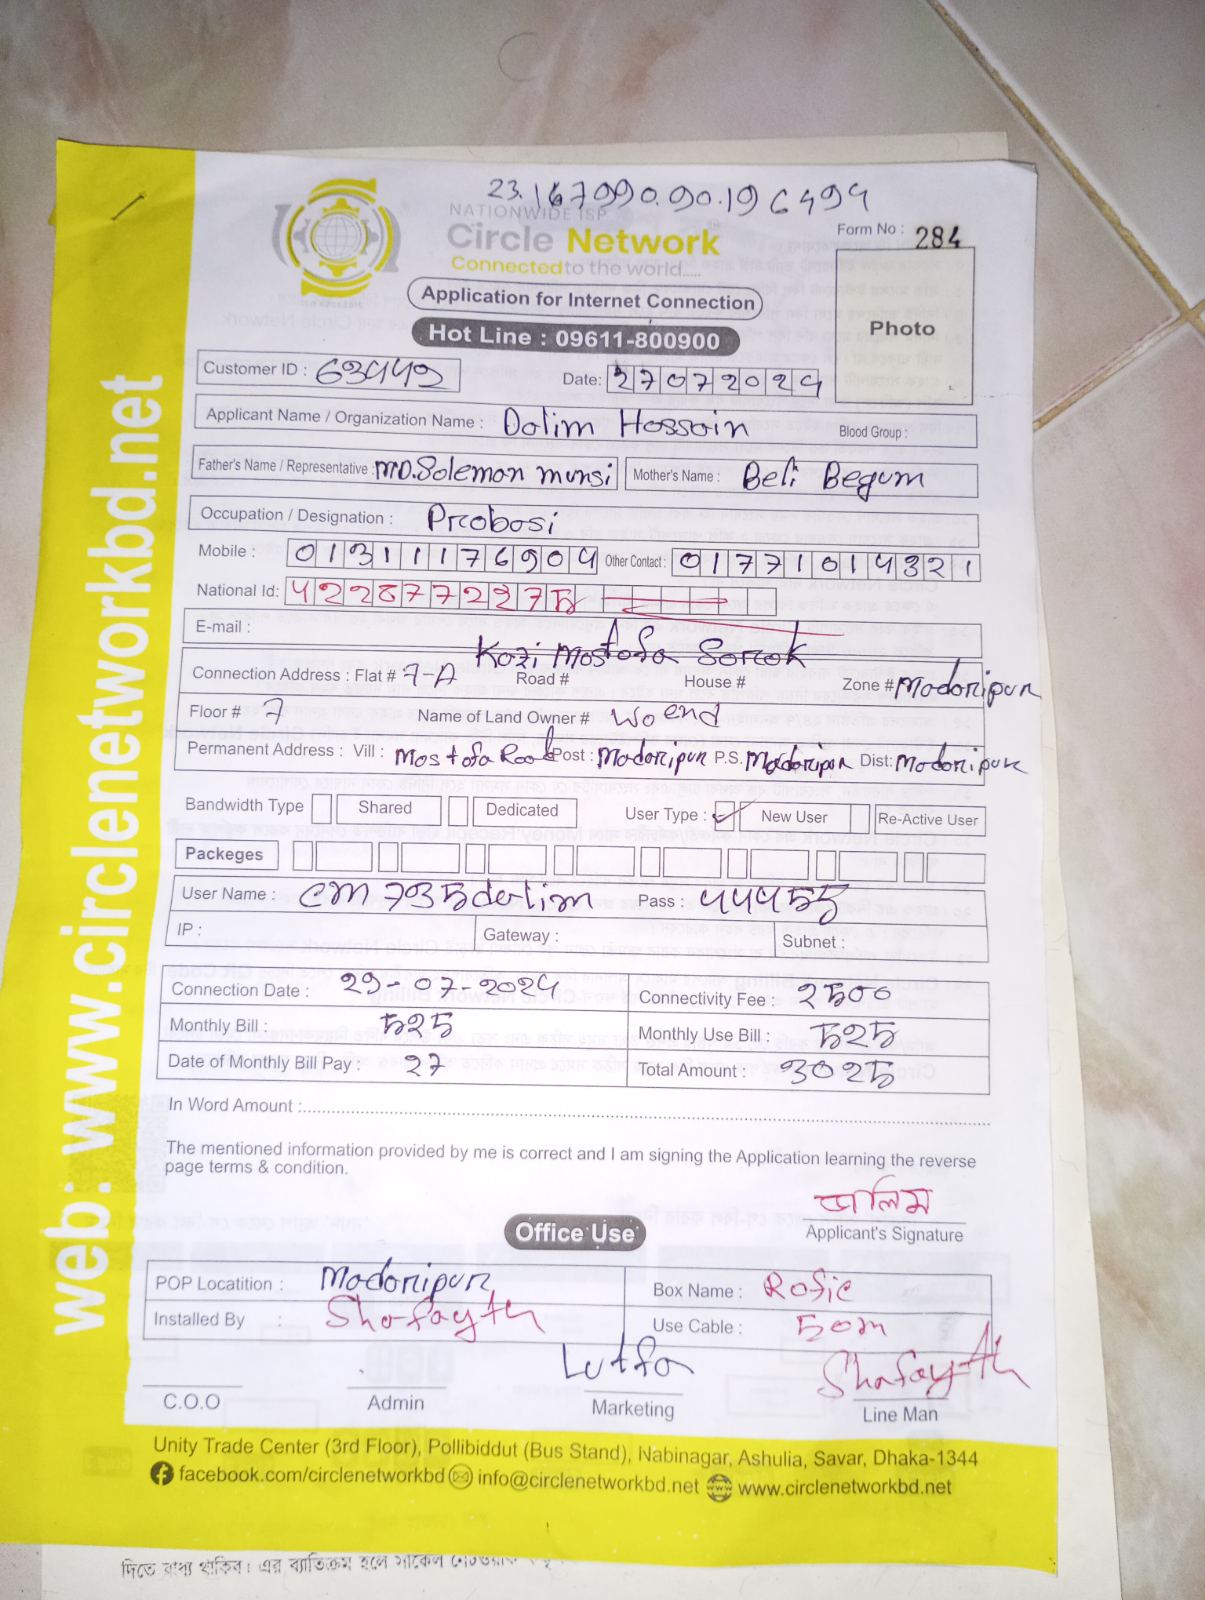 23.167990.90.196494
NATIONWIDE ISP
Circle Network
Connected to the world.....
Form No : 284
Application for Internet Connection
Photo
Hot Line : 09611-800900
Customer ID : 63442
Date: 27072024
Applicant Name / Organization Name : Dalim Hossain Blood Group :
Father's Name / Representative : MD.Solemon munsi Mother's Name : Beli Begum
Occupation / Designation : Probosi
Mobile : 01311176904 Other Contact : 01771014321
National Id: 4228772275
E-mail :
Kazi Mostofa Sorok
Connection Address : Flat # 7-A Road # House # Zone # Madaripur
Floor # 7 Name of Land Owner #
Permanent Address : Vill : Mostofa Road Post : Madaripur P.S. Madaripur Dist: Madaripur
Bandwidth Type Shared Dedicated User Type : ✓ New User Re-Active User
Packeges
User Name : CM735dalim Pass : 44455
IP : Gateway : Subnet :
Connection Date : 29-07-2024 Connectivity Fee : 2500
Monthly Bill : 525 Monthly Use Bill : 525
Date of Monthly Bill Pay : 27 Total Amount : 3025
In Word Amount :
The mentioned information provided by me is correct and I am signing the Application learning the reverse
page terms & condition.
ডালিম
Applicant's Signature
Office Use
POP Locatition : Madaripur Box Name : Rofic
Installed By : Shafayth Use Cable : 50m
Lutfa Shafayth
C.O.O Admin Marketing Line Man
Unity Trade Center (3rd Floor), Pollibiddut (Bus Stand), Nabinagar, Ashulia, Savar, Dhaka-1344
facebook.com/circlenetworkbd info@circlenetworkbd.net www.circlenetworkbd.net
web: www.circlenetworkbd.net
দিতে বাধ্য থাকিব। এর ব্যতিক্রম হলে সার্কেল